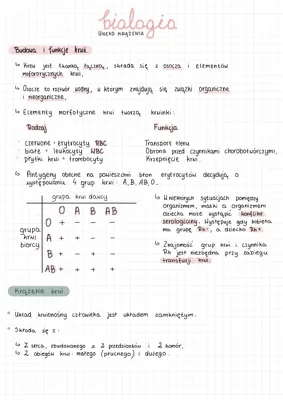 biologia
UKŁAD KRĄŻENIA
Budowa i funkcje krwi.
↳ Krew jest tkanką łączną, składa się z osocza i elementów
morfotycznych krwi,
↳ Osocze to roztwór wodny, w którym znajdują się związki organiczne
i nieorganiczne,
↳ Elementy morfotyczne krwi tworzą krwinki:
Rodzaj Funkcja
czerwone - erytrocyty RBC Transport tlenu.
białe - leukocyty WBC Obrona przed czynnikami chorobotwórczymi,
płytki krwi - trombocyty Krzepnięcie krwi.
↳ Antygeny obecne na powierzchni błon erytrocytów decydują o
występowaniu 4 grup krwi: A, B, AB, O.
grupa krwi dawcy
O A B AB
grupa krwi biorcy
O + - - -
A + + - -
B + - + -
AB + + + +
↳ W niektórych sytuacjach pomiędzy
organizmem matki a organizmem
dziecka może wystąpić konflikt
serologiczny. Występuje gdy kobieta
ma grupę Rh-, a dziecko Rh+.
↳ Znajomość grup krwi i czynnika
Rh jest niezbędna przy zabiegu
transfuzji krwi.
Krążenie krwi
• Układ krwionośny człowieka jest układem zamkniętym.
• Składa się z:
↳ z serca, zbudowanego z 2 przedsionków i 2 komór,
↳ 2 obiegów krwi: małego (płucnego) i dużego.